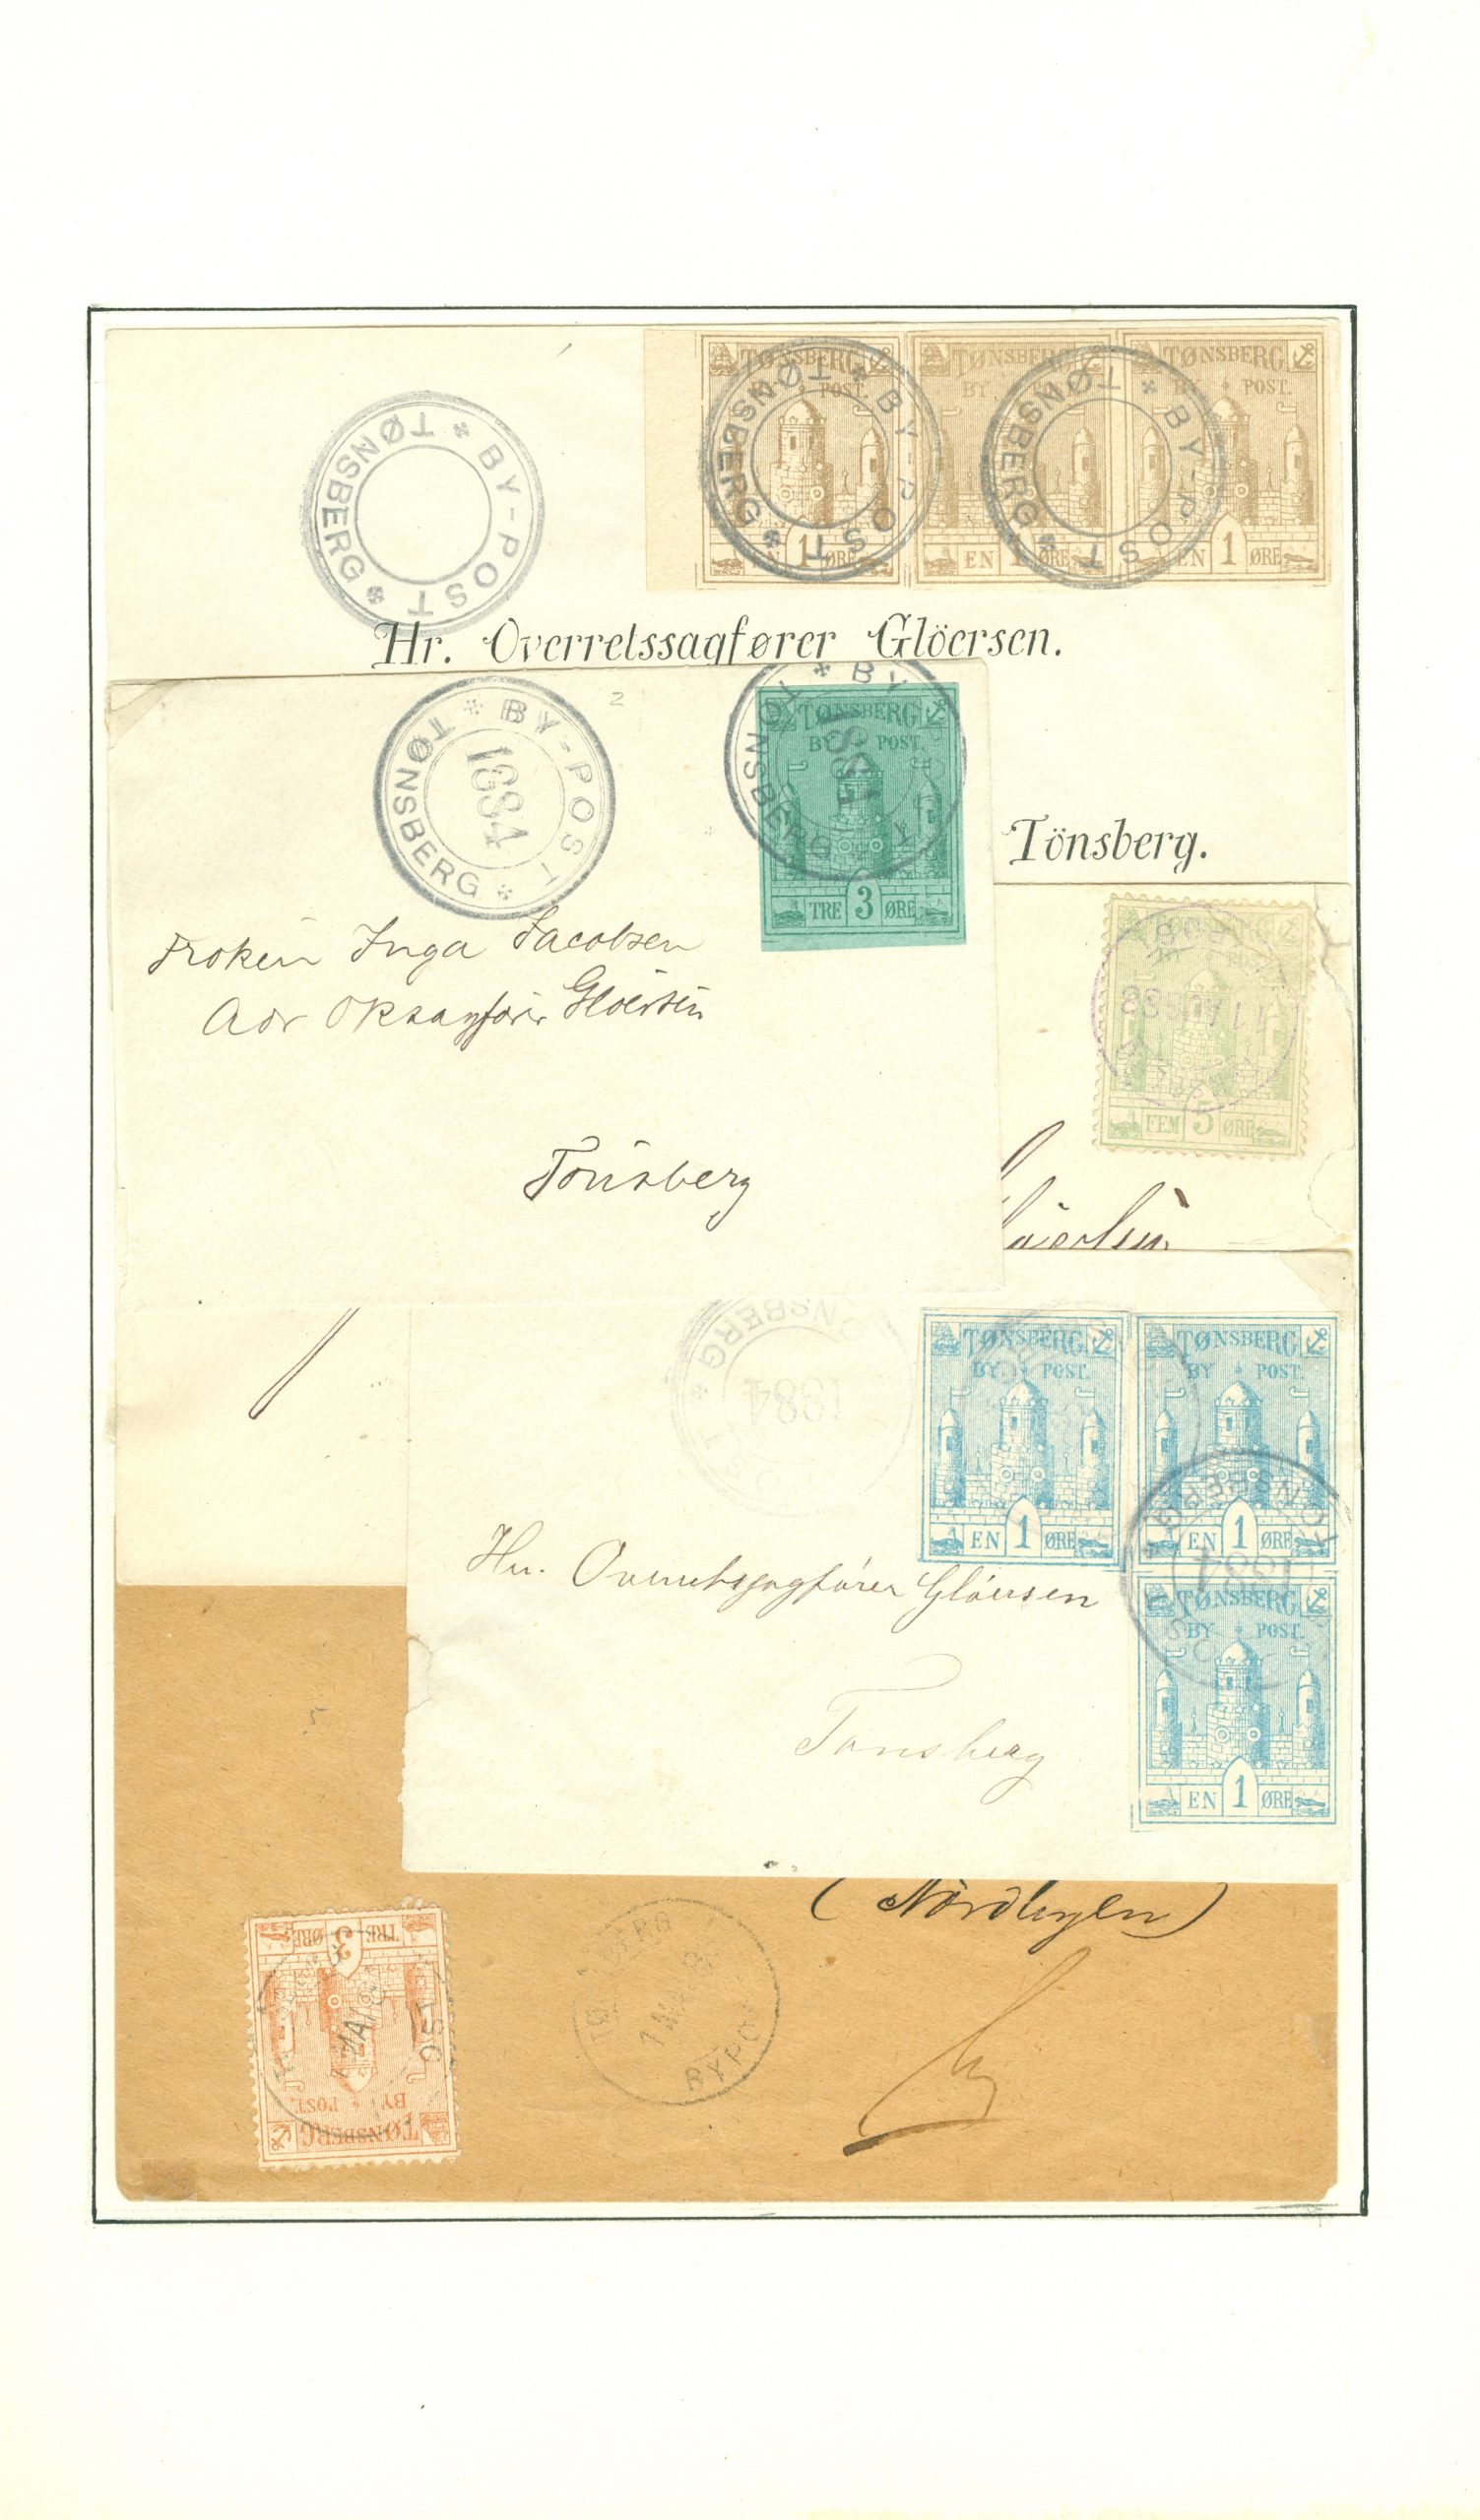 TØNSBERG BY POST. EN 1 ØRE
TØNSBERG BY POST. EN 1 ØRE
TØNSBERG BY POST. EN 1 ØRE
* BY-POST * TØNSBERG
* BY-POST * TØNSBERG
* BY-POST * TØNSBERG
Hr. Overretssagfører Glöersen.
Tönsberg.
2
* BY-POST * TØNSBERG
1884
TØNSBERG
BY POST.
TRE 3 ØRE
* BY TØNSBERG
1884
Frøken Inga Jacobsen
Adr ORsagfører Gloersen
Tønsberg
BY POST.
FEM 5 ØRE
TØNSBERG *
1884
TØNSBERG
BY POST.
EN 1 ØRE
TØNSBERG
BY POST.
EN 1 ØRE
TØNSBERG
BY POST.
EN 1 ØRE
1884
Hr. Overretssagfører Glöersen
Tønsberg
(Nördlyen)
TØNSBERG
BY POST.
TRE 3 ØRE
MAI
BYPOST